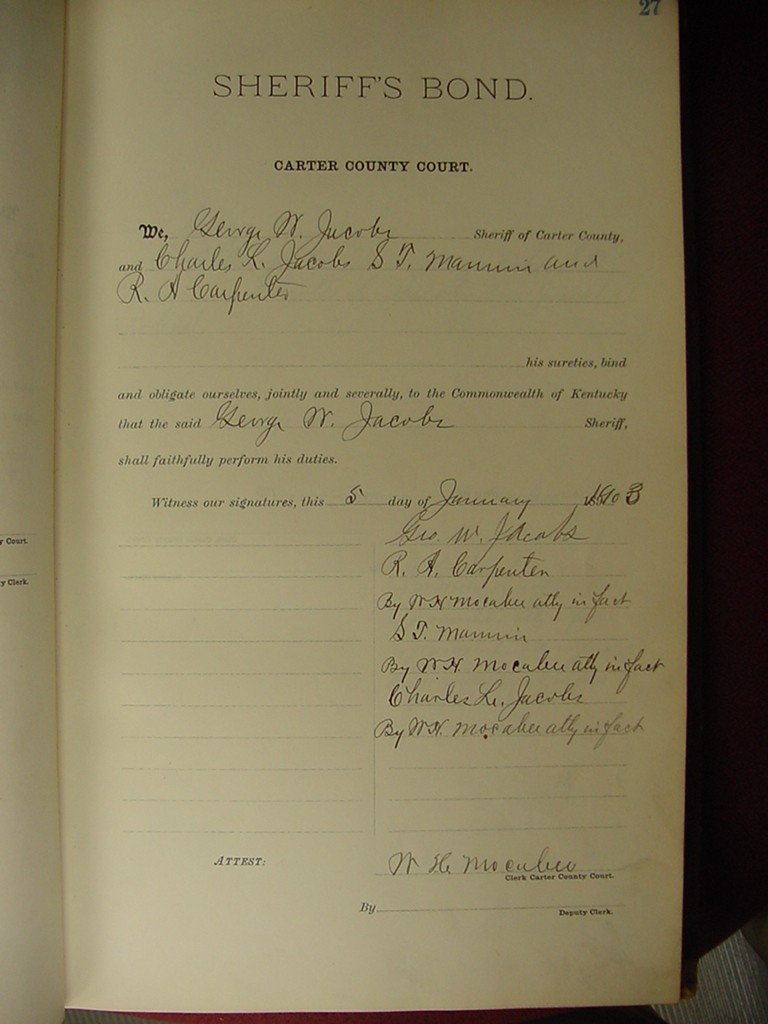 27
SHERIFF'S BOND.
CARTER COUNTY COURT.
We, George W. Jacobs Sheriff of Carter County,
and Charles L. Jacobs S T. Mannin and
R. A Carpenter
his sureties, bind
and obligate ourselves, jointly and severally, to the Commonwealth of Kentucky
that the said George W. Jacobs Sheriff,
shall faithfully perform his duties.
Witness our signatures, this 5 day of January 1903
Geo. W. Jacobs
R. A. Carpenter
By W H Mocabee atty in fact
S T. Mannin
By W H. Mocabee atty in fact
Charles L. Jacobs
By W H. Mocabee atty in fact
ATTEST: W H. Mocabee
Clerk Carter County Court.
By
Deputy Clerk.
y Court.
y Clerk.